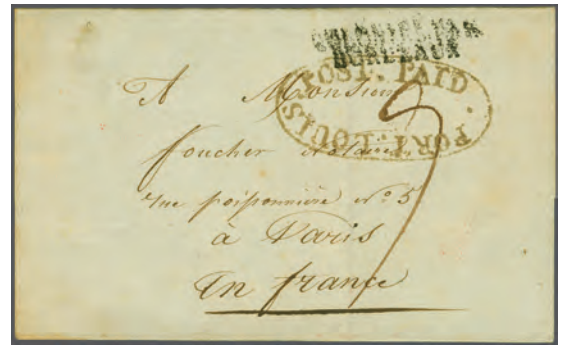 COLONIES PAR
BORDEAUX
POST. PAID
PORT. LOUIS
A Monsieur
foucher Notaire
rue poissonniere n.º 5
à Paris
en france